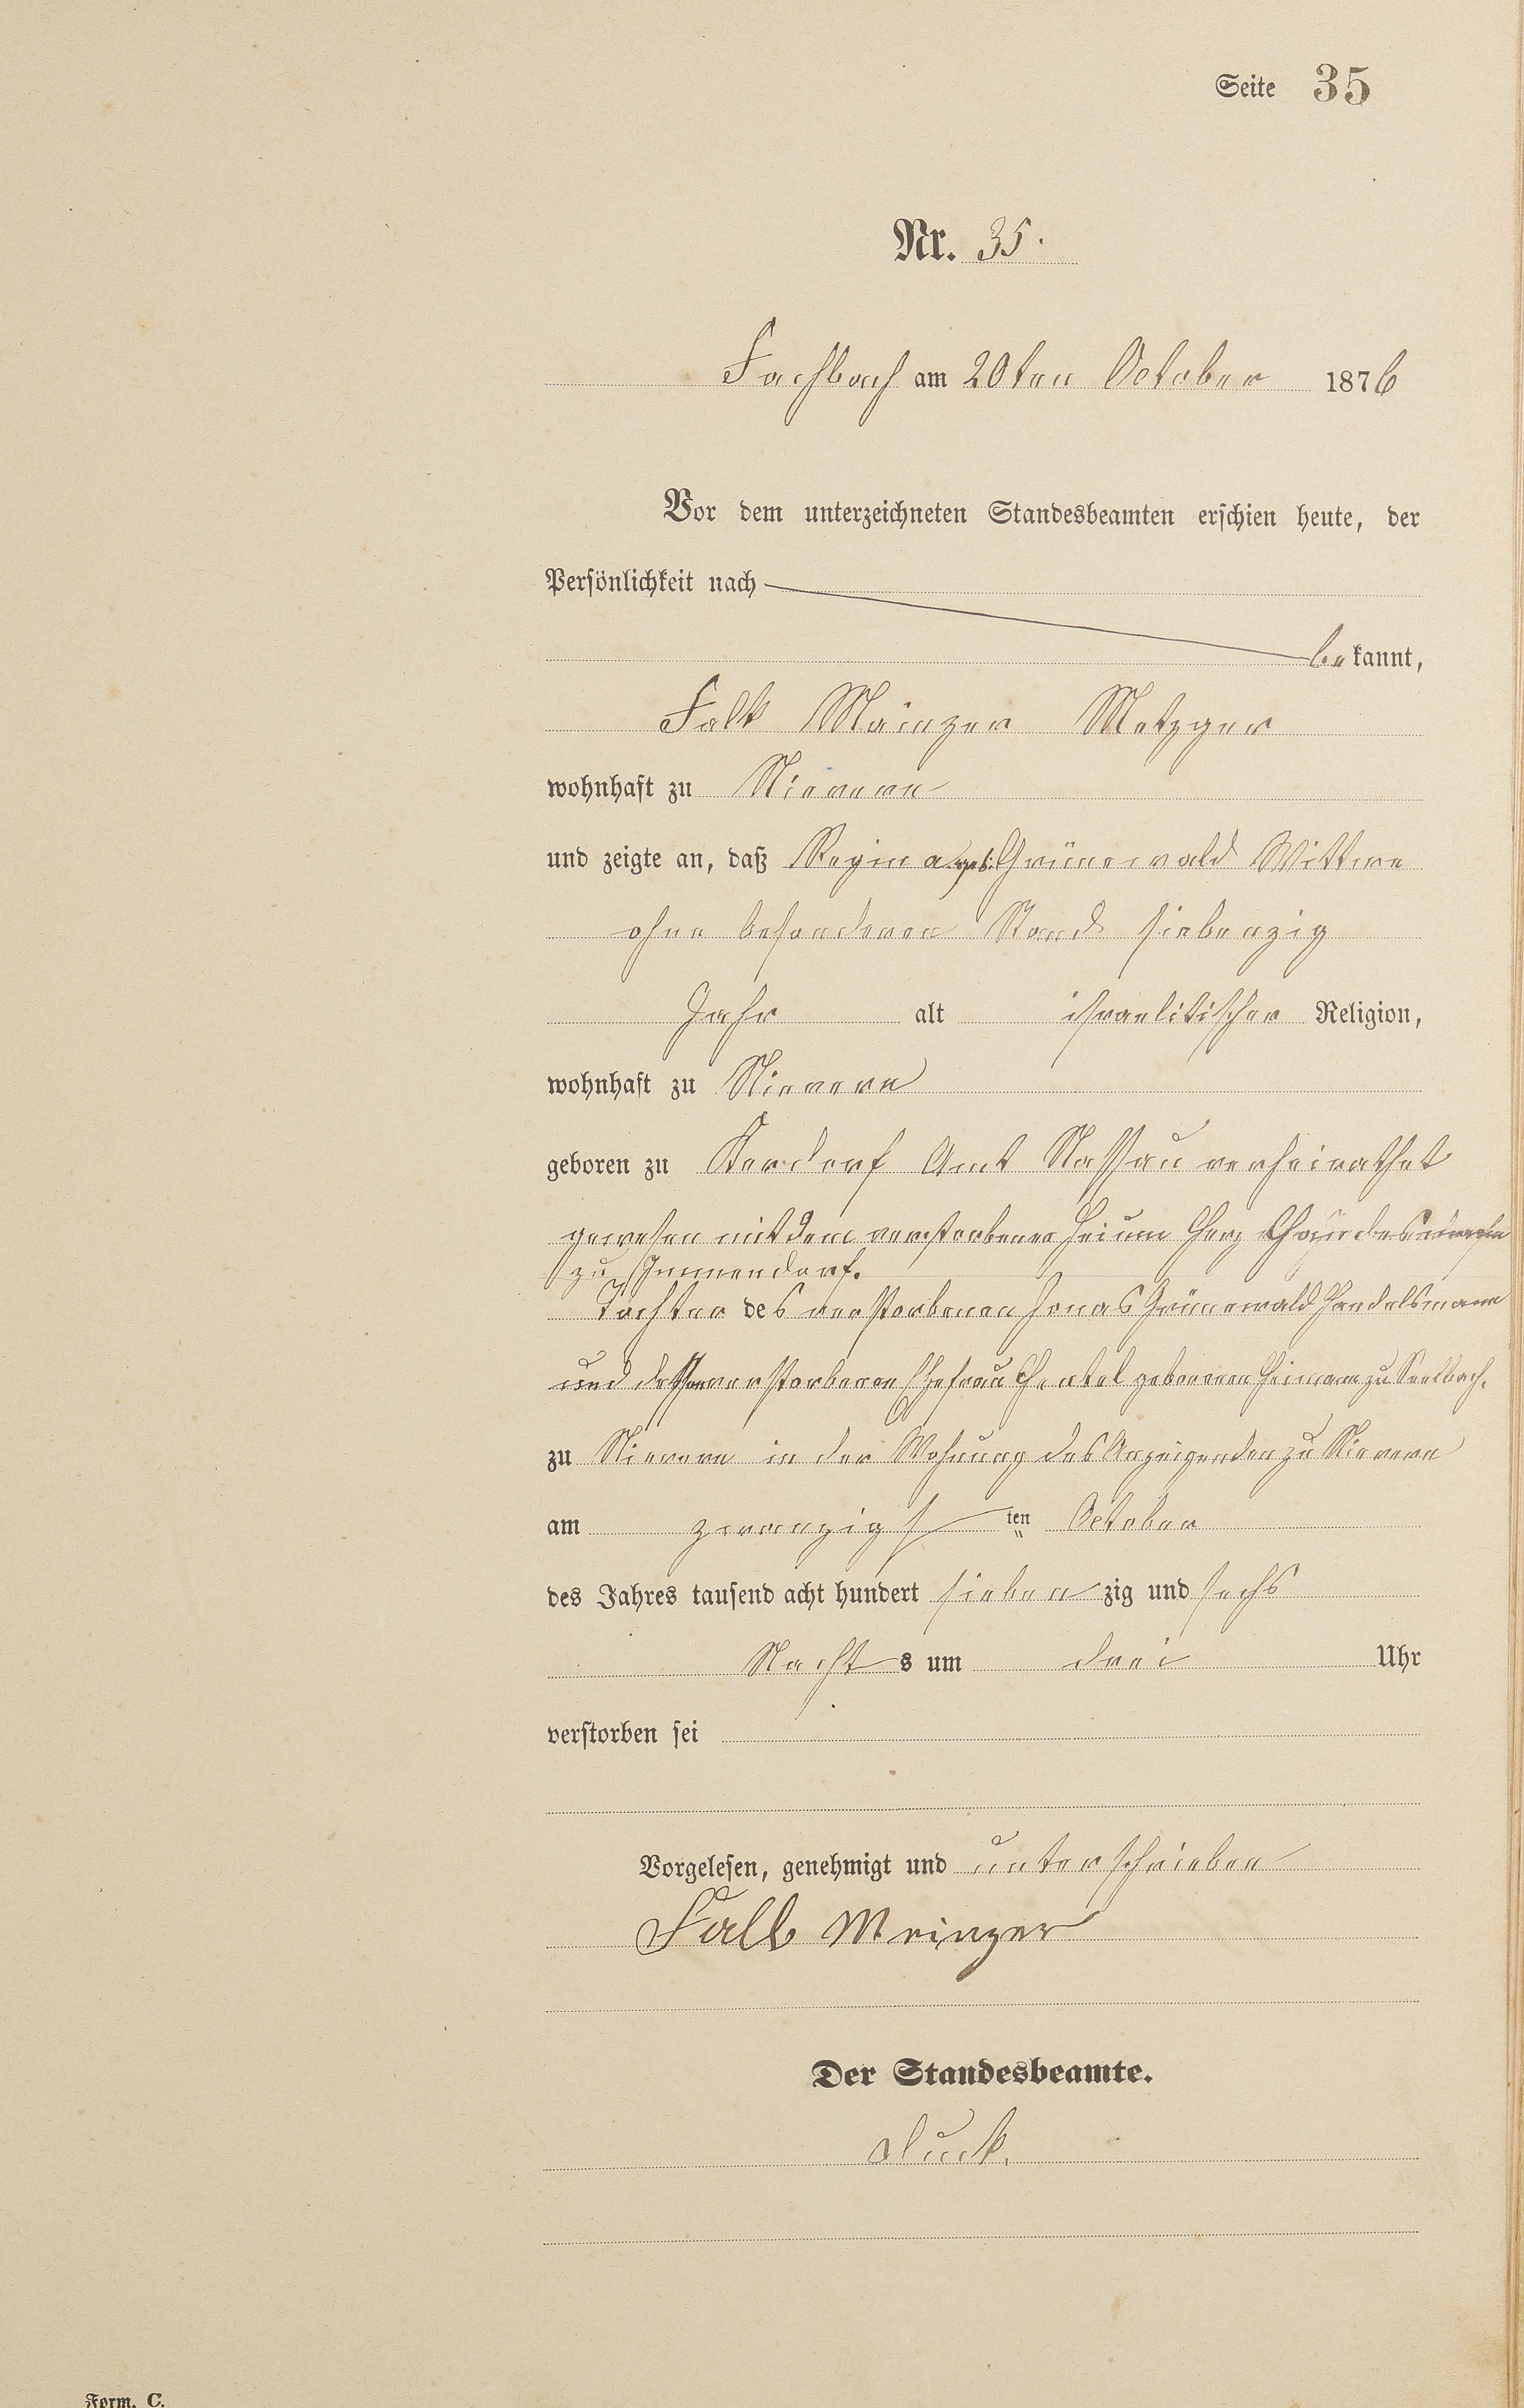 Seite 35
Nr. 35.
Fachbach am 20ten October 1876
Vor dem unterzeichneten Standesbeamten erschien heute, der
Persönlichkeit nach
bekannt,
Falk Mainzer Metzger
wohnhaft zu Nievern
und zeigte an, daß Regina geb. Grünewald Wittwe
ohne besonderen Stand siebenzig
Jahr alt israelitischer Religion,
wohnhaft zu Nievern
geboren zu Kördorf Amt Nassau verheirathet
gewesen mit dem verstorbenen Herz
zu Immendorf.
Tochter des verstorbenen Jonas Grünewald Handelsmann
und dessen verstorbenen Ehefrau geborenen Heimann zu Seelbach.
zu Nievern in der Wohnung des Anzeigenden zu Nievern
am zwanzigsten October
des Jahres tausend acht hundert siebenzig und sechs
Nachts um drei Uhr
verstorben sei
Vorgelesen, genehmigt und unterschrieben
Falk Meinzer
Der Standesbeamte.
Form. C.